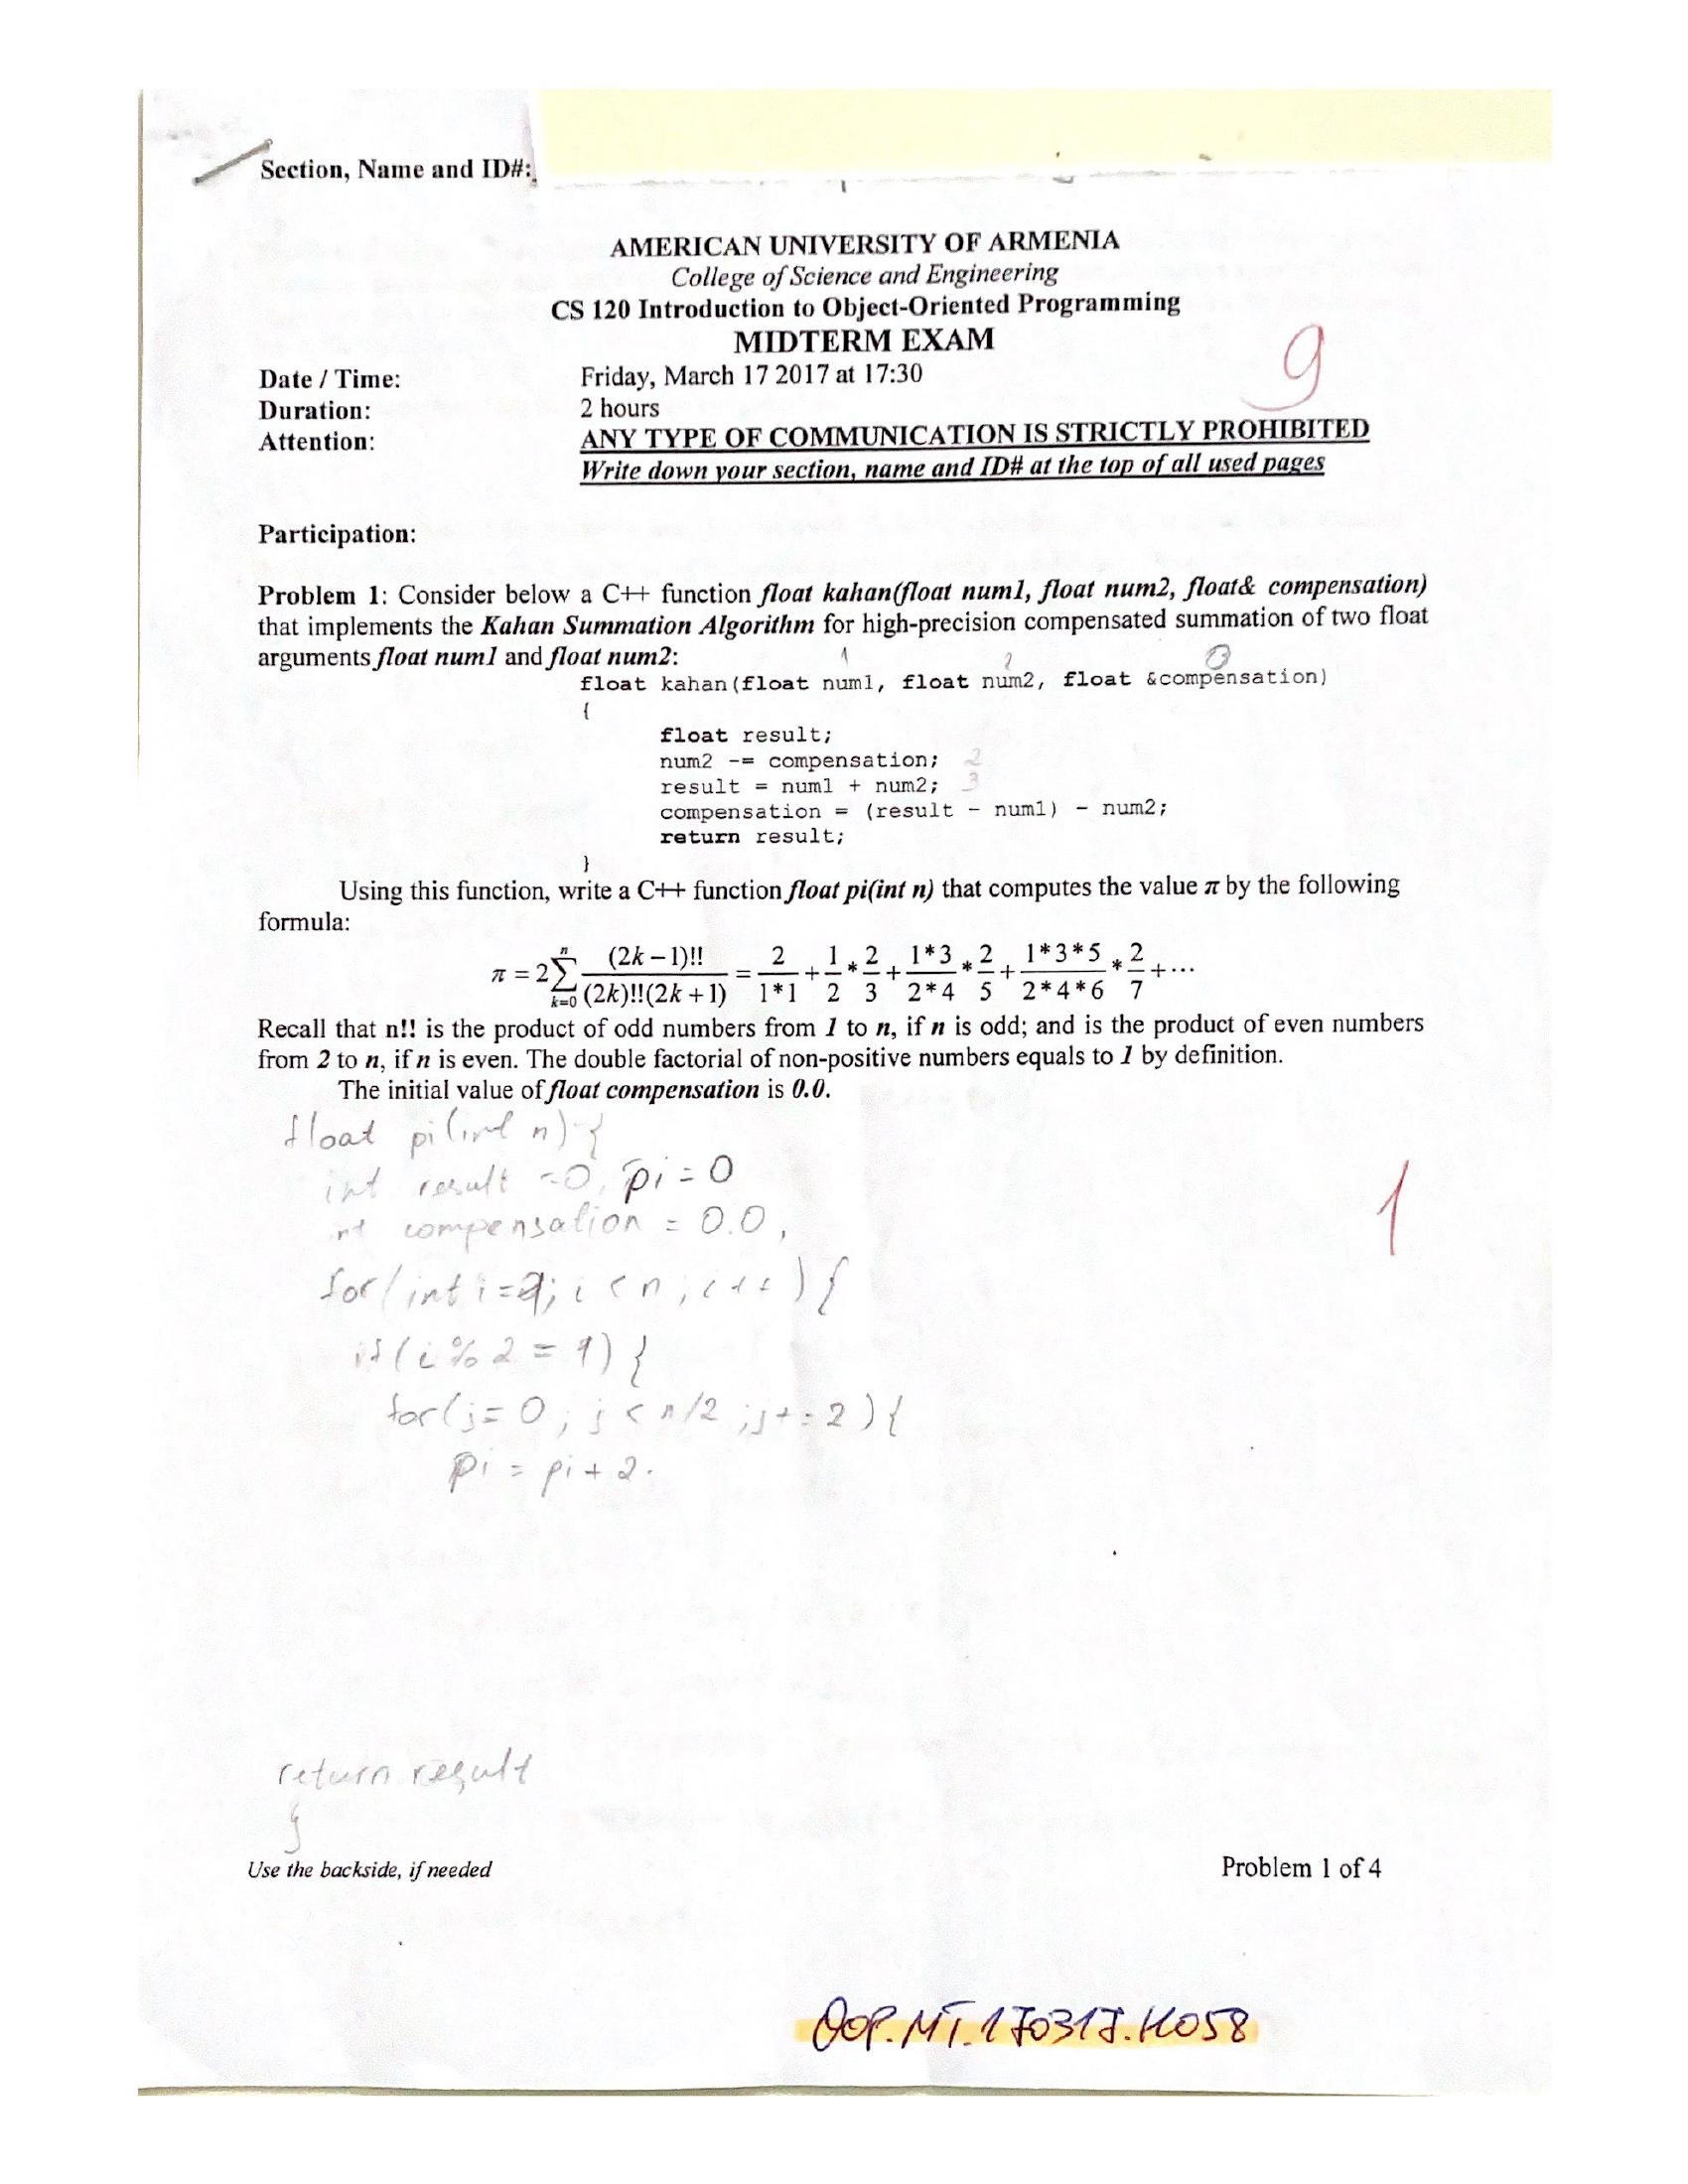 Section, Name and ID#:
AMERICAN UNIVERSITY OF ARMENIA
College of Science and Engineering
CS 120 Introduction to Object-Oriented Programming
MIDTERM EXAM
9
Date / Time: Friday, March 17 2017 at 17:30
Duration: 2 hours
Attention: ANY TYPE OF COMMUNICATION IS STRICTLY PROHIBITED
Write down your section, name and ID# at the top of all used pages
Participation:
Problem 1: Consider below a C++ function float kahan(float num1, float num2, float& compensation)
that implements the Kahan Summation Algorithm for high-precision compensated summation of two float
arguments float num1 and float num2:
1 2 0
float kahan(float num1, float num2, float &compensation)
{
float result;
num2 -= compensation; 2
result = num1 + num2; 3
compensation = (result - num1) - num2;
return result;
}
Using this function, write a C++ function float pi(int n) that computes the value π by the following
formula:
π = 2 ∑_{k=0}^{n} (2k – 1)!! / (2k)!!(2k + 1) = 2 / 1*1 + 1/2 * 2/3 + 1*3 / 2*4 * 2/5 + 1*3*5 / 2*4*6 * 2/7 + ⋯
Recall that n!! is the product of odd numbers from 1 to n, if n is odd; and is the product of even numbers
from 2 to n, if n is even. The double factorial of non-positive numbers equals to 1 by definition.
The initial value of float compensation is 0.0.
float pi(int n) {
int result =0, pi = 0
int compensation = 0.0,
1
for(int i = ; i < n ; i++) {
if (i % 2 = 1) {
for(j = 0 ; j < n/2 ; j += 2) {
pi = pi + 2.
return result
}
Use the backside, if needed
Problem 1 of 4
OOP.MT.170317.K058